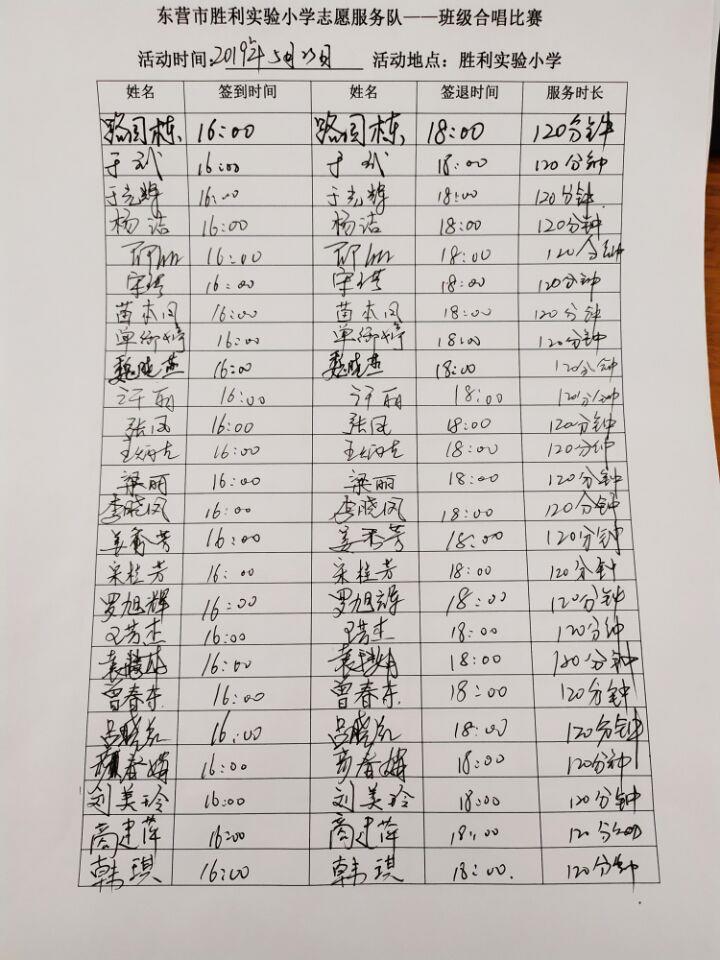 东营市胜利实验小学志愿服务队——班级合唱比赛
活动时间:2019年5月23日 活动地点：胜利实验小学
姓名 签到时间 姓名 签退时间 服务时长
16:00 18:00 120分钟
于武 16:00 于武 18:00 120分钟
于光辉 16:00 于光辉 18:00 120分钟
杨洁 16:00 杨洁 18:00 120分钟
16:00 18:00 120分钟
宋 16:00 宋 18:00 120分钟
苗本凤 16:00 苗本凤 18:00 120分钟
单 婷 16:00 单 婷 18:00 120分钟
魏晓燕 16:00 魏晓燕 18:00 120分钟
许丽 16:00 许丽 18:00 120分钟
张凤 16:00 张凤 18:00 120分钟
王炳克 16:00 王炳克 18:00 120分钟
梁丽 16:00 梁丽 18:00 120分钟
李晓凤 16:00 李晓凤 18:00 120分钟
姜秀芳 16:00 姜秀芳 18:00 120分钟
宋桂芳 16:00 宋桂芳 18:00 120分钟
罗旭辉 16:00 罗旭辉 18:00 120分钟
王芳杰 16:00 王芳杰 18:00 120分钟
袁 16:00 袁 18:00 120分钟
曾春东 16:00 曾春东 18:00 120分钟
吕晓 16:00 吕晓 18:00 120分钟
春梅 16:00 春梅 18:00 120分钟
刘美玲 16:00 刘美玲 18:00 120分钟
商建萍 16:00 商建萍 18:00 120分钟
韩琪 16:00 韩琪 18:00. 120分钟